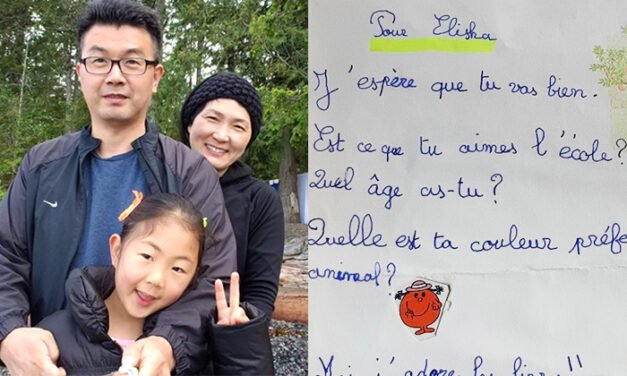 Pour Eliska
J'espère que tu vas bien.
Est ce que tu aimes l'école?
Quel âge as-tu?
Quelle est ta couleur préfé
animal?
j'adore